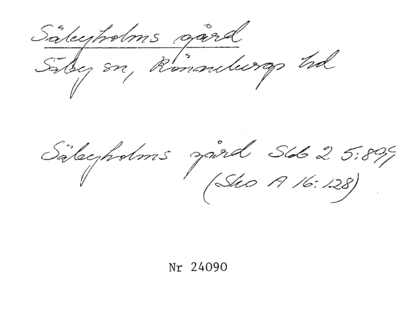 Säbyholms gård
Säby sn, Rönnebergs hd
Säbyholms gård Skb 2 5:899
(Sko A 16:128)
Nr 24090